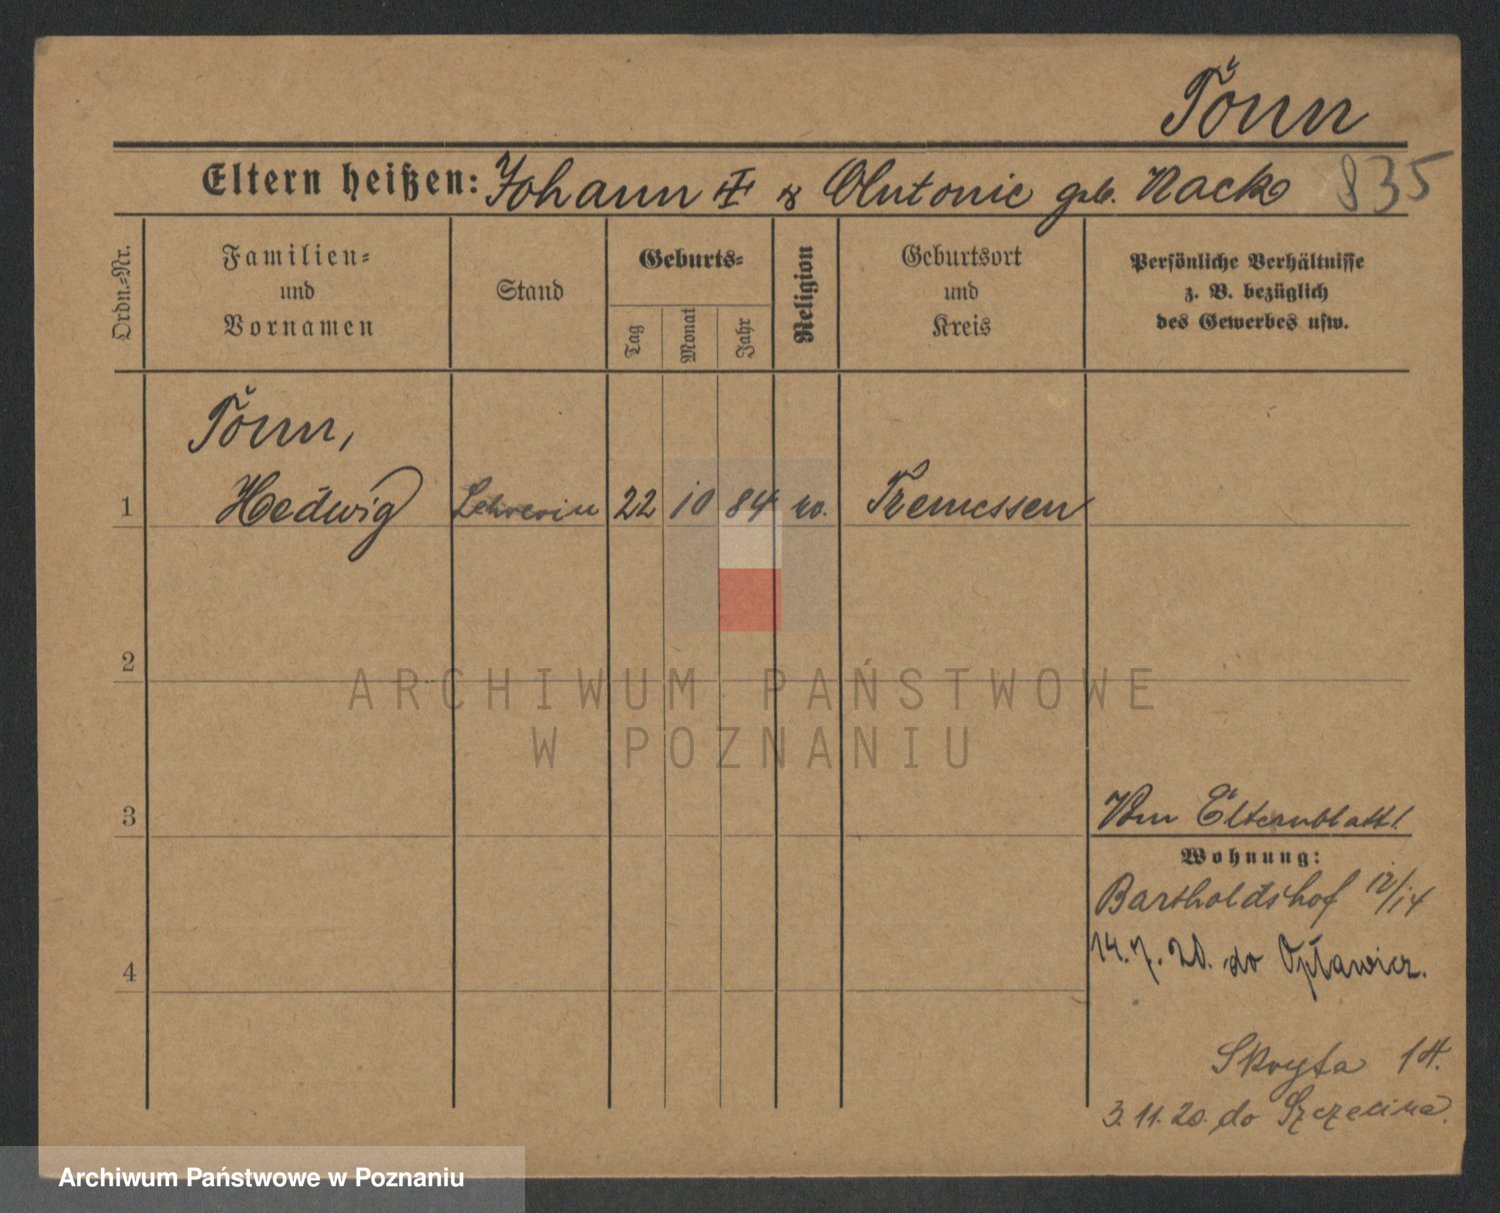 Tönn
Eltern heißen: Johann & Antonie geb. Nacke 835
Ordn.-Nr.
Familien-
und
Vornamen
Stand
Geburts-
Tag
Monat
Jahr
Religion
Geburtsort
und
Kreis
Persönliche Verhältnisse
z. B. bezüglich
des Gewerbes usw.
Tönn,
1 Hedwig Lehrerin 22 10 84 Tremessen
2
3
4
Vom Elternblatt!
Wohnung:
Bartholdshof 12/14
14.7.20. do Opławiec.
Skryta 14.
3.11.20. do Szczecina.
ARCHIWUM PAŃSTWOWE
W POZNANIU
Archiwum Państwowe w Poznaniu